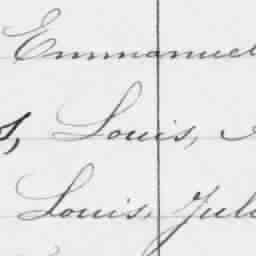 Emmanuel
s, Louis,
Louis, Jul